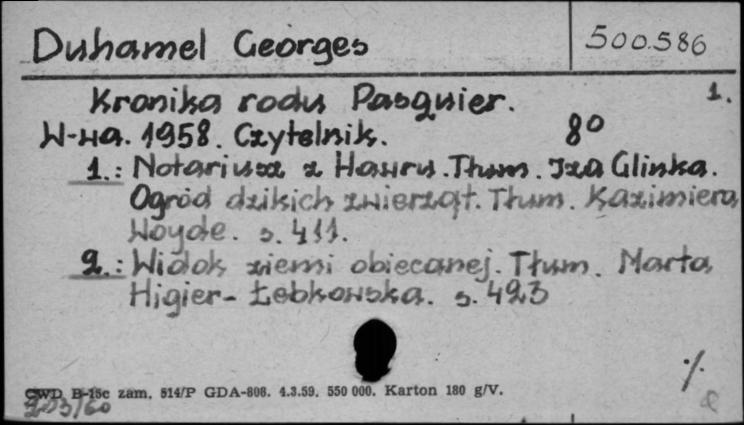 Duhamel Georges
500.586
Kronika rodu Pasquier.
1.
W-wa. 1958. Czytelnik. 8⁰
1.: Notariusz z Hawru. Tłum. Iza Glinka.
Ogród dzikich zwierząt. Tłum. Kazimiera
Woyde. s. 411.
2.: Widok ziemi obiecanej. Tłum. Marta
Higier-Łebkowska. s. 423
./.
CWD B-15c zam. 514/P GDA-808. 4.3.59. 550 000. Karton 180 g/V.